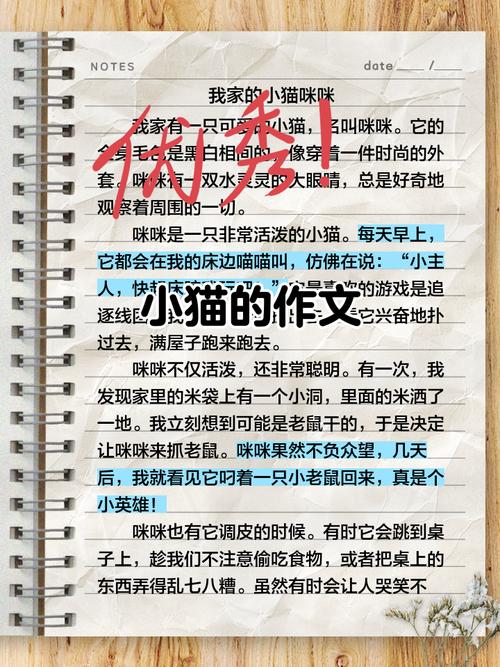 NOTES
date /
我家的小猫咪咪
优秀!
我家有一只可爱的小猫，名叫咪咪。它的
全身毛色是黑白相间的，像穿着一件时尚的外
套。咪咪有一双水灵灵的大眼睛，总是好奇地
观察着周围的一切。
咪咪是一只非常活泼的小猫。每天早上，
它都会在我的床边喵喵叫，仿佛在说：“小主
人，快
的游戏是追
小猫的作文
逐线
它兴奋地扑
过去，满屋子跑来跑去。
咪咪不仅活泼，还非常聪明。有一次，我
发现家里的米袋上有一个小洞，里面的米洒了
一地。我立刻想到可能是老鼠干的，于是决定
让咪咪来抓老鼠。咪咪果然不负众望，几天
后，我就看见它叼着一只小老鼠回来，真是个
小英雄！
咪咪也有它调皮的时候。有时它会跳到桌
子上，趁我们不注意偷吃食物，或者把桌上的
东西弄得乱七八糟。虽然有时会让人哭笑不